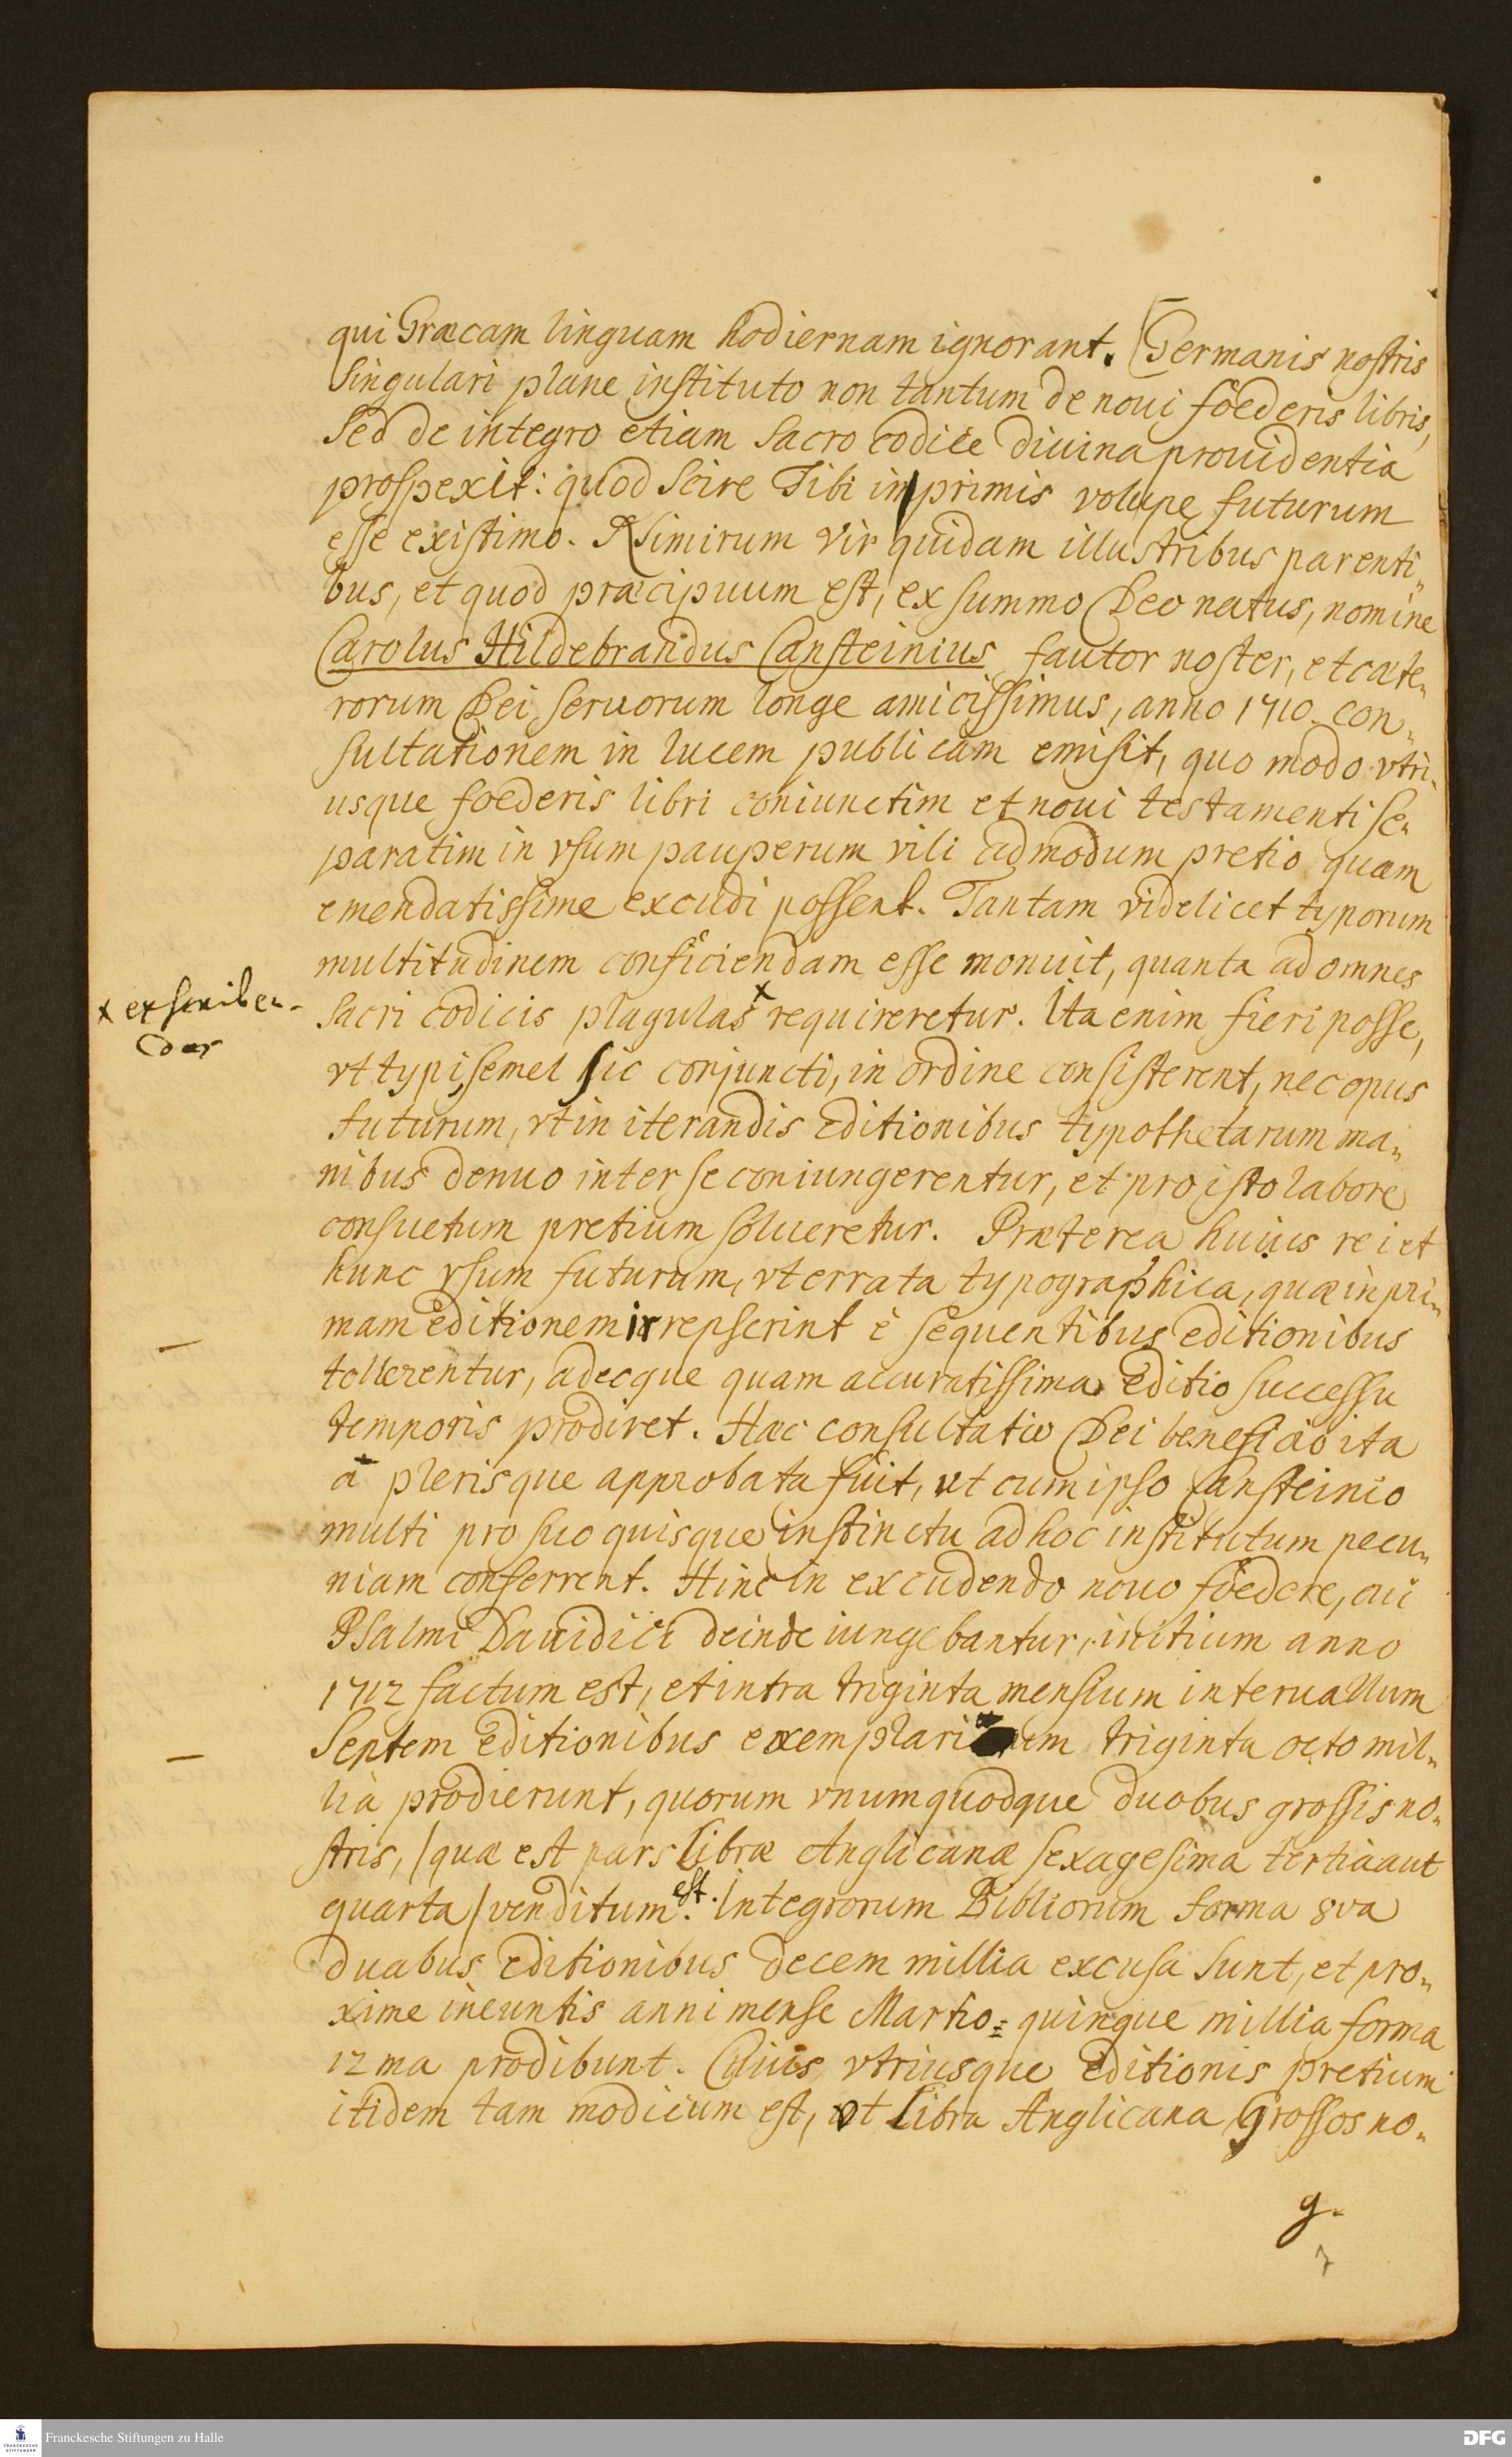 qui Græcam linguam hodiernam ignorant. [Germanis nostris
singulari plane instituto non tantum de noui foederis libris,
sed de integro etiam sacro codice diuina prouidentia
prospexit: quod scire Tibi inprimis volupe futurum
esse existimo. Nimirum vir quidam illustribus parenti„
bus, et quod præcipuum est, ex summo Deo natus, nomine
Carolus Hildebrandus Cansteinius fautor noster, et cæte„
rorum Dei seruorum longe amicissimus, anno 1710. con„
sultationem in lucem publicam emisit, quo modo vtri„
usque foederis libri coniunctim et noui testamenti se„
paratim in vsum pauperum vili admodum pretio quam
emendatissime excudi possent. Tantam videlicet typorum
multitudinem conficiendam esse monuit, quanta ad omnes
sacri codicis plagulas x requireretur. Ita enim fieri posse,
x exscriben-
das
vt typi semel sic conjuncti, in ordine consisterent, nec opus
futurum, vt in iterandis editionibus typothetarum ma„
nibus denuo inter se coniungerentur, et pro isto labore
consuetum pretium solueretur. Præterea huius rei et
hunc vsum futurum, vt errata typographica, quæ in pri„
mam editionem irrepserint è sequentibus editionibus
tollerentur, adeoque quam accuratissima editio successu
temporis prodiret. Hæc consultatio Dei beneficio ita
a plerisque approbata fuit, vt cum ipso Cansteinio
multi pro suo quisque instinctu ad hoc institutum pecu„
niam conferrent. Hinc in excudendo nouo foedere, cui
Psalmi Dauidici deinde iungebantur, initium anno
1712 factum est, et intra triginta mensium interuallum
septem editionibus exemplarium triginta octo mil„
lia prodierunt, quorum vnumquodque duobus grossis no„
stris, /quæ est pars libræ Anglicanæ sexagesima tertia aut
quarta/ venditum est. Integrorum Bibliorum forma 8va
duabus editionibus decem millia excusa sunt, et pro„
xime ineuntis anni mense Martio quinque millia forma
12ma prodibunt. Cuius vtriusque editionis pretium
itidem tam modicum est, vt libra Anglicana Grossos no„
g.
Franckesche Stiftungen zu Halle
DFG